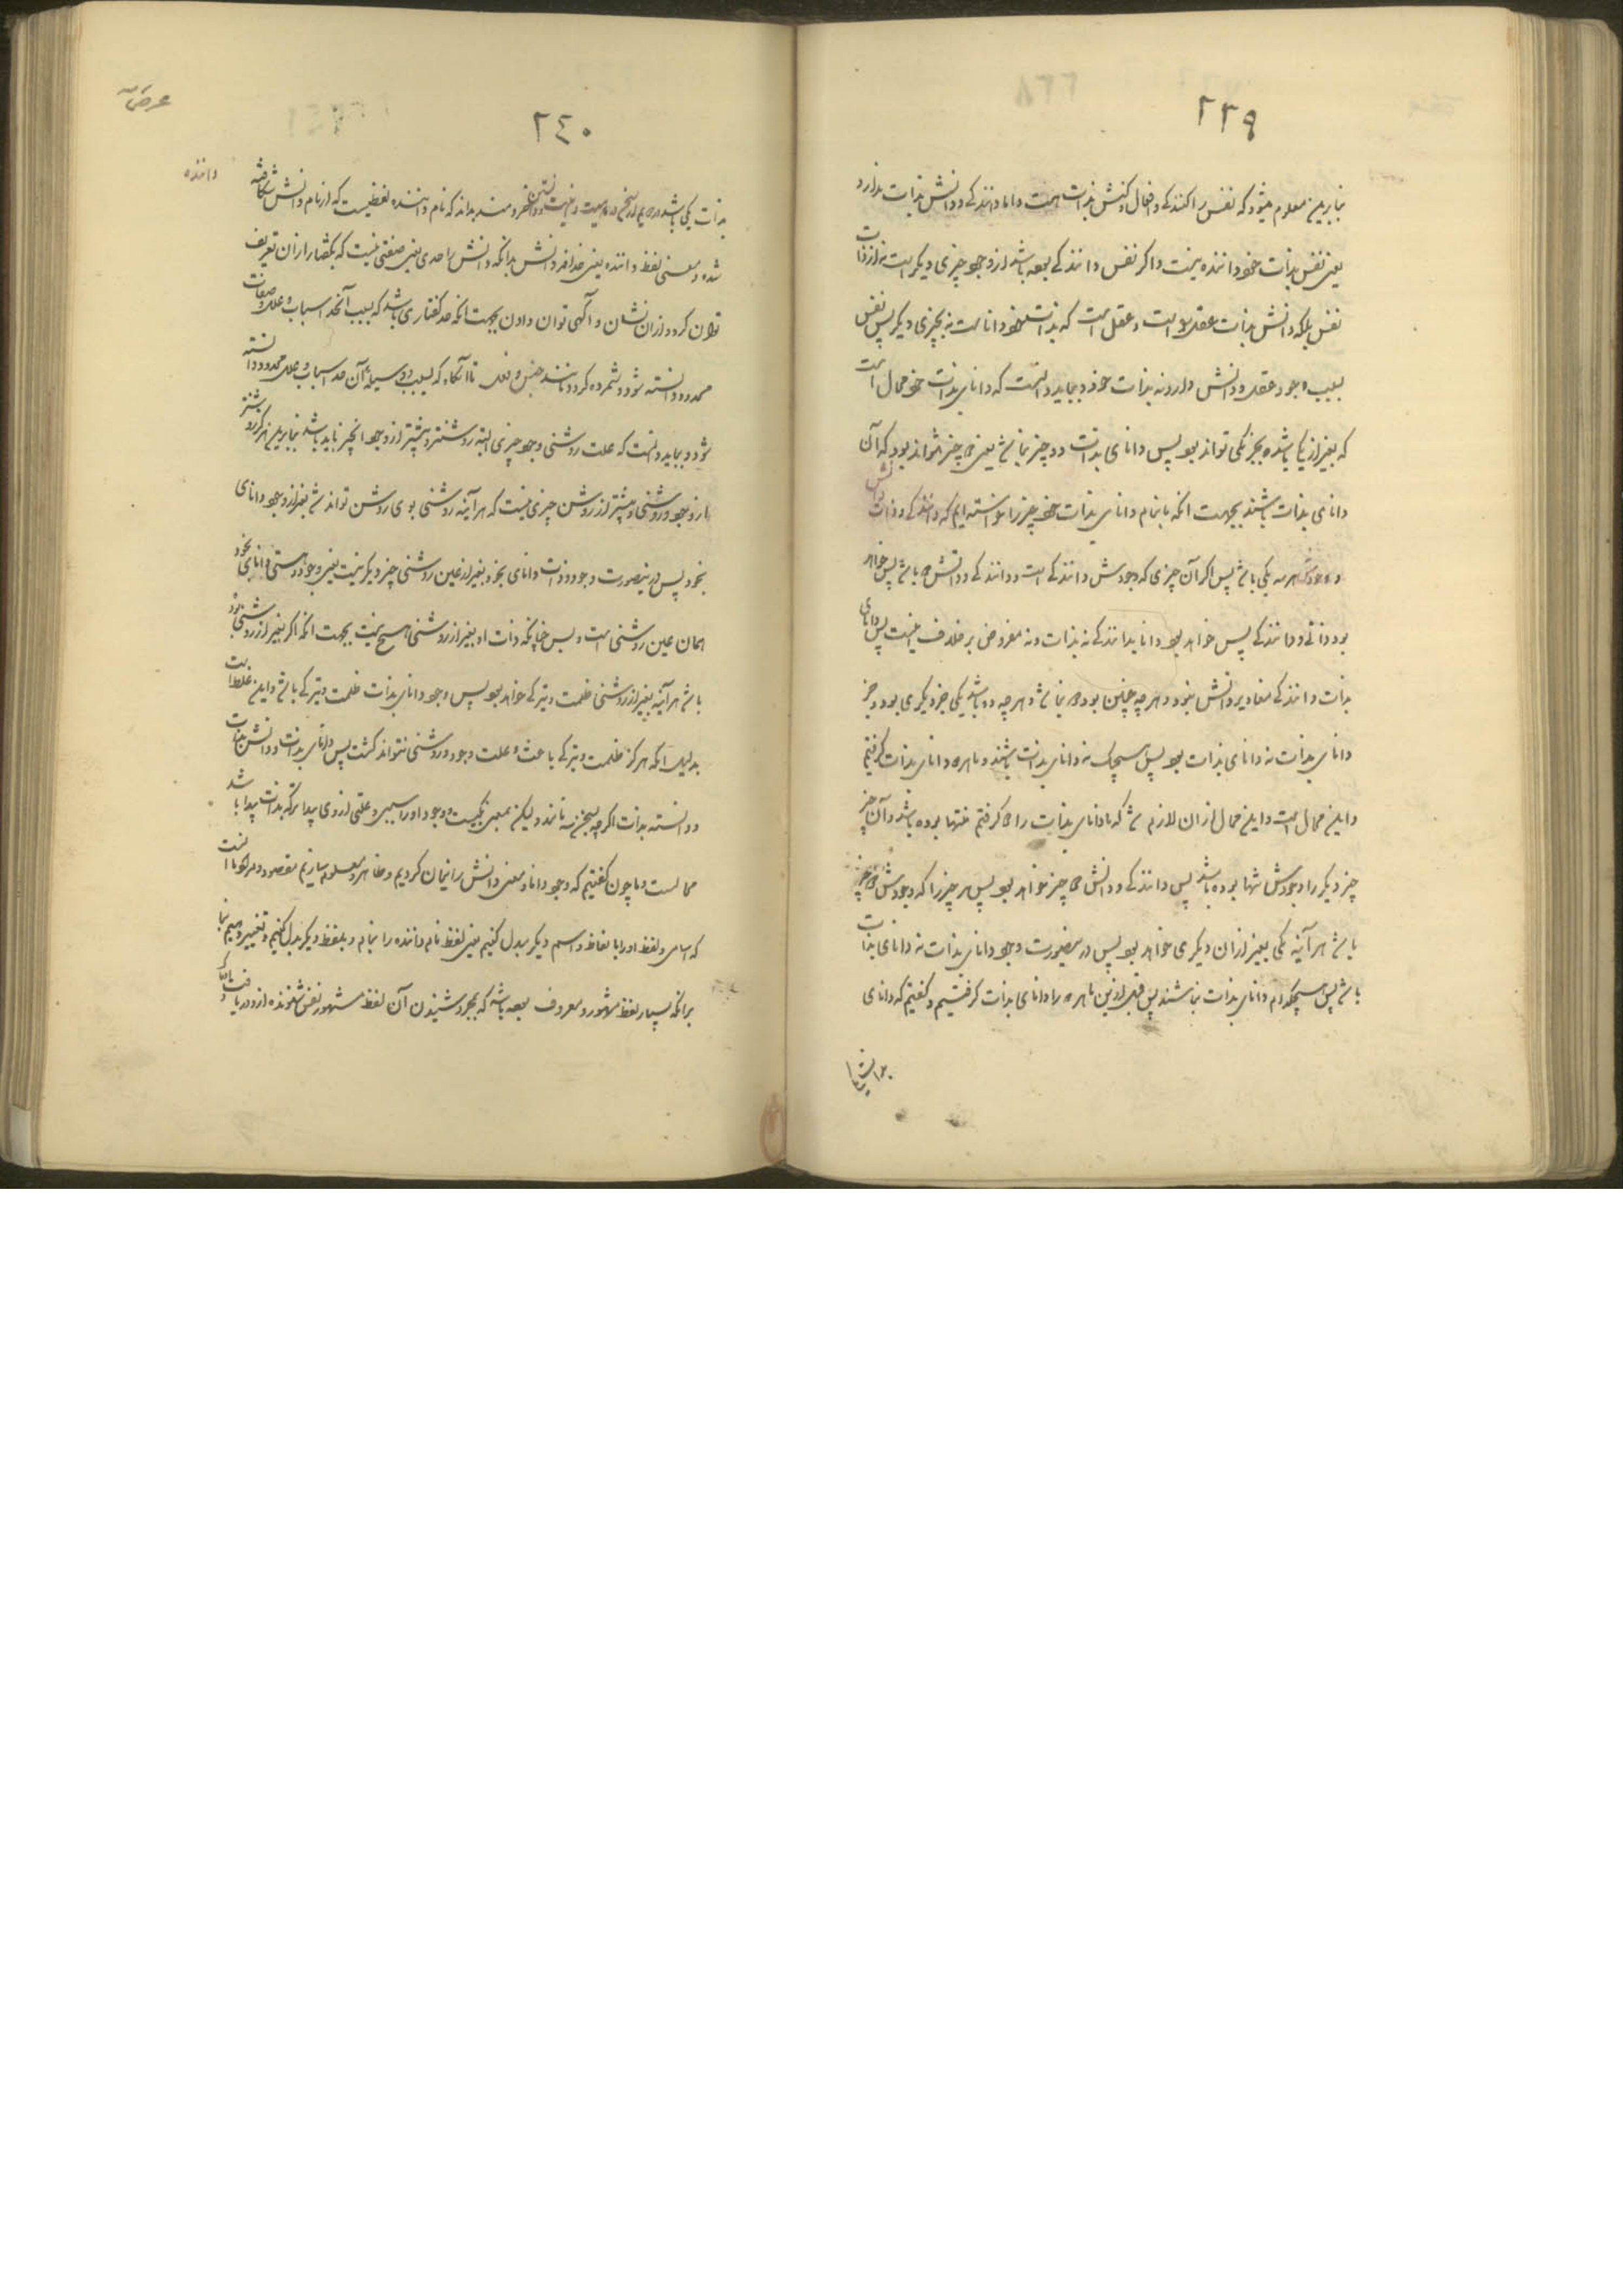 ٢٣٩
بنابرین معلوم میشود که نفس را کنندگی و افعال و کنش بذات هست و اما دانندگی و دانش بذات ندارد
یعنی نفس بذات خود داننده نیست و اگر نفس دانندگی بوده باشد از وجود چیزی دیگر است نه از ذات
نفس بلکه دانش بذات عقل را است و عقل است که بذات خود داناست نه بچیزی دیگر پس نفس
بسبب وجود عقل دانش دارد نه بذات خود و بباید دانست که دانای بذات خود محال است
که بغیر از یکی باشد و بجز یکی تواند بود پس دانای بذات دو چیز نباشد یعنی چیز نتواند بود که آن
دانای بذات باشند بجهت آنکه بنام دانای بذات خود چیز را خواسته ایم که دانندگی و دانش
و وجودش هر سه یکی باشد پس اگر آن چیزی که وجودش دانندگی است و دانندگی و دانش باشد پس خواهد
بود ذاتی و دانندگی پس خواهد بود دانا بدانندگی نه بذات و نه مفروض بر خلاف اینست پس دانای
بذات و دانندگی مغایر دانش نبود و هر چه چنین بود نباشد و هر چه دو باشد یکی جز دیگری بود و جز
دانای بذات نه دانای بذات بود پس هیچیک نه دانای بذات باشند و ما هر دو دانای بذات گرفتیم
و این محال است و این محال از آن لازم شد که ما دانای بذات را گرفتیم تنها بوده باشد و آن چیز
چیز دیگر را وجودش تنها بوده باشد پس دانندگی و دانش چیز خواهد بود پس هر چیز را که وجودش چیز
باشد هر آینه یکی بغیر از آن دیگری خواهد بود پس در اینصورت وجود دانای بذات نه دانای بذات
باشد پس هیچکدام دانای بذات نباشند پس قبل ازین ما هر دو را دانای بذات گرفتیم و گفتیم که دانای
٢٤٠
بذات یکی باشد داننده و خردمند بداند که نام داننده لفظیست که از نام دانش شکافته
شده و معنی لفظ داننده یعنی دانش بدانکه دانش را حدی یعنی صفتی نیست که بگفتار از آن تعریف
توان کرد و از آن نشان و آگهی توان دادن بجهت آنکه حد گفتاری باشد که بسبب آنحد اسباب و علل و صفات
محدود دانسته شود و شمرده گردد مانند جنس و فصل تا آنگاه که بسبب و وسیلهٔ آن حد اسباب و علل محدود دانسته
شود و بباید دانست که علت روشنی وجود چیزی البته روشنتر و پیشتر از وجود آنچیز باید باشد بنابرین هرگز روشنتر
از وجود روشنی و پیشتر از روشن چیزی نیست که هر آینه روشنی بوی روشن تواند شد بغیر از وجود دانای
بخود پس در اینصورت وجود و ذات دانای بخود بغیر از عین روشنی چیز دیگر نیست یعنی وجود و هستی دانای بخود
همان عین روشنی است و بس چنانکه ذات او بغیر از روشنی هیچ نیست بجهت آنکه اگر بغیر از روشنی بود
باشد هر آینه بغیر از روشنی ظلمت و تیرگی خواهد بود پس وجود دانای بذات ظلمت و تیرگی باشد و این غلط است
بدلیل آنکه هرگز ظلمت و تیرگی باعث و علت وجود روشنی نتواند گشت پس دانای بذات و دانش بذات
و دانسته بذات اگر چه بسخن سه تا اند ولیکن بمعنی یکیست و وجود او را سببی و علتی از وی پیدا تر که بذات پیدا باشد
محالست و ما چون گفتیم که وجود دانا و معنی دانش را بیان کردیم و ظاهر و معلوم سازیم مقصود و مراد ما آنست
که اسامی و لفظ او را بالفاظ و اسم دیگر بدل کنیم یعنی لفظ نام داننده را بنام و بلفظ دیگر بدل کنیم و تغییر دهیم بنا
برآنکه بسیار لفظ مشهور و معروف بوده باشد که بمجرد شنیدن آن لفظ مشهور نفس شنونده از و دریافت
داننده